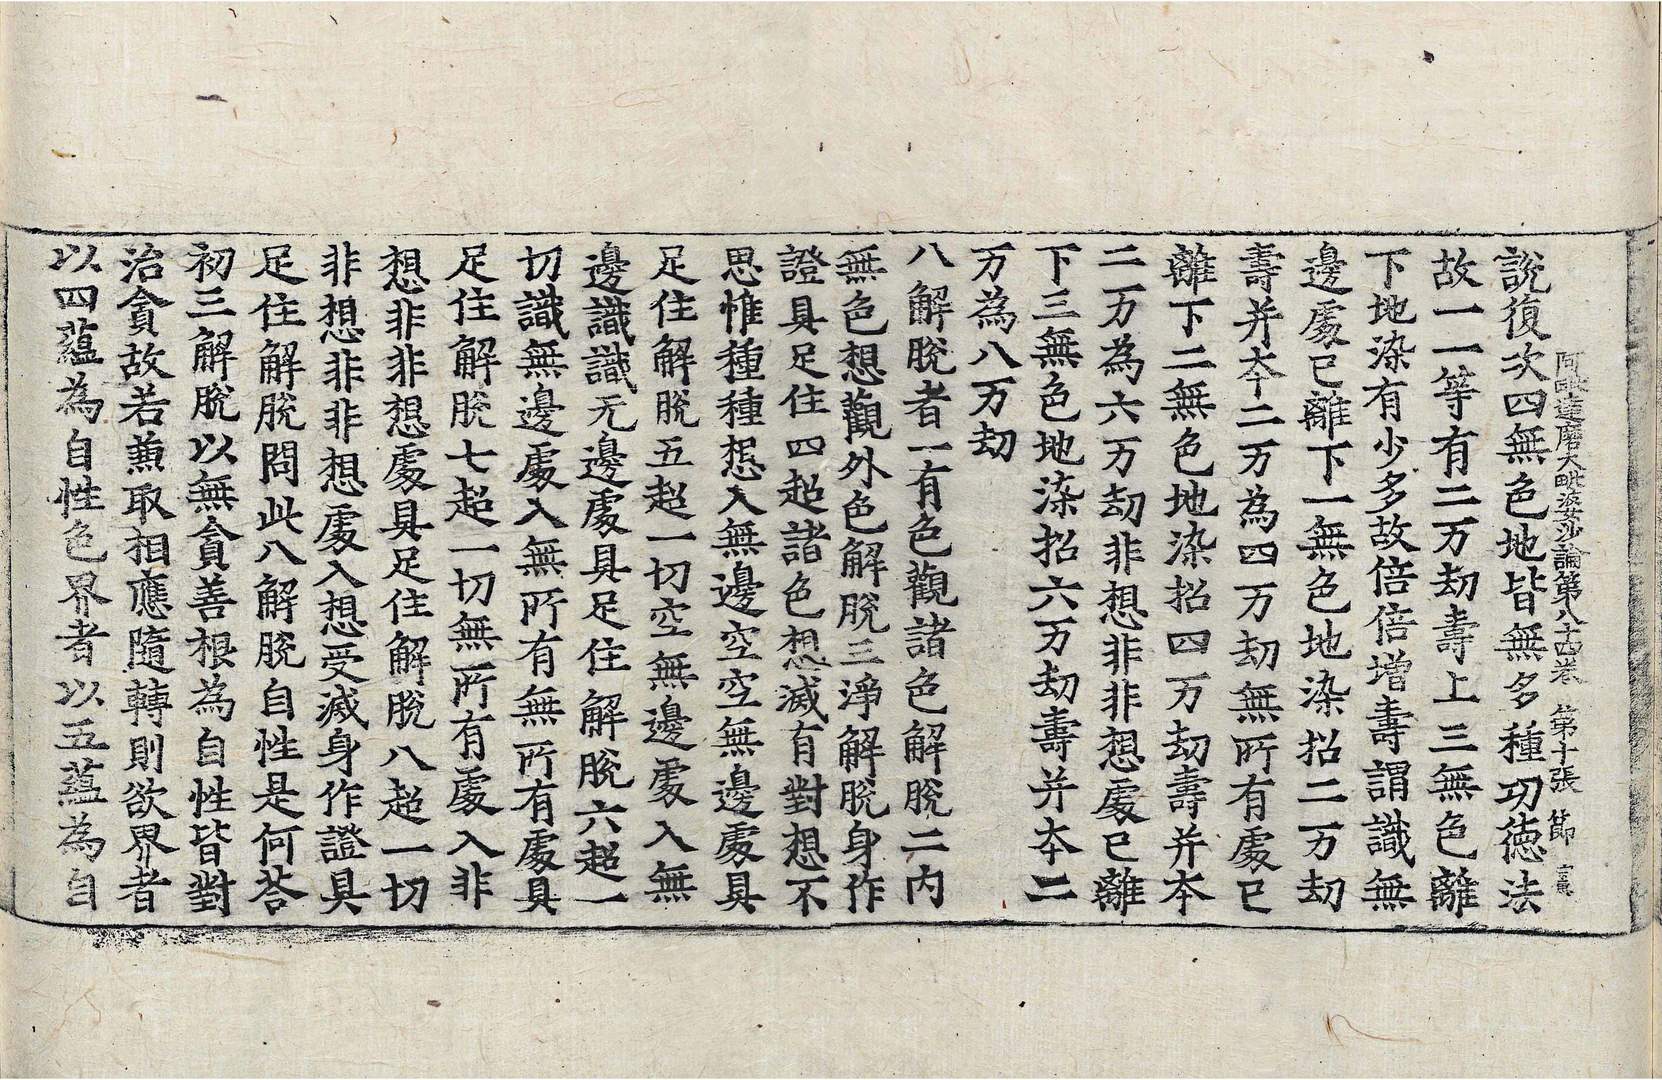 阿毗達磨大毗婆沙論第八十四卷　第十張　節
說復次四無色地皆無多種功德法
故一一等有二万劫壽上三無色離
下地染有少多故倍倍增壽謂識無
邊處已離下一無色地染招二万劫
壽并夲二万為四万劫無所有處已
離下二無色地染招四万劫壽并夲
二万為六万劫非想非非想處已離
下三無色地染招六万劫壽并夲二
万為八万劫
八解脫者一有色觀諸色解脫二內
無色想觀外色解脫三淨解脫身作
證具足住四超諸色想滅有對想不
思惟種種想入無邊空空無邊處具
足住解脫五超一切空無邊處入無
邊識識无邊處具足住解脫六超一
切識無邊處入無所有無所有處具
足住解脫七超一切無所有處入非
想非非想處具足住解脫八超一切
非想非非想處入想受滅身作證具
足住解脫問此八解脫自性是何荅
初三解脫以無貪善根為自性皆對
治貪故若兼取相應隨轉則欲界者
以四蘊為自性色界者以五蘊為自